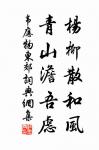 楊柳散和風
青山澹吾慮
韋應物東郊詞典網集